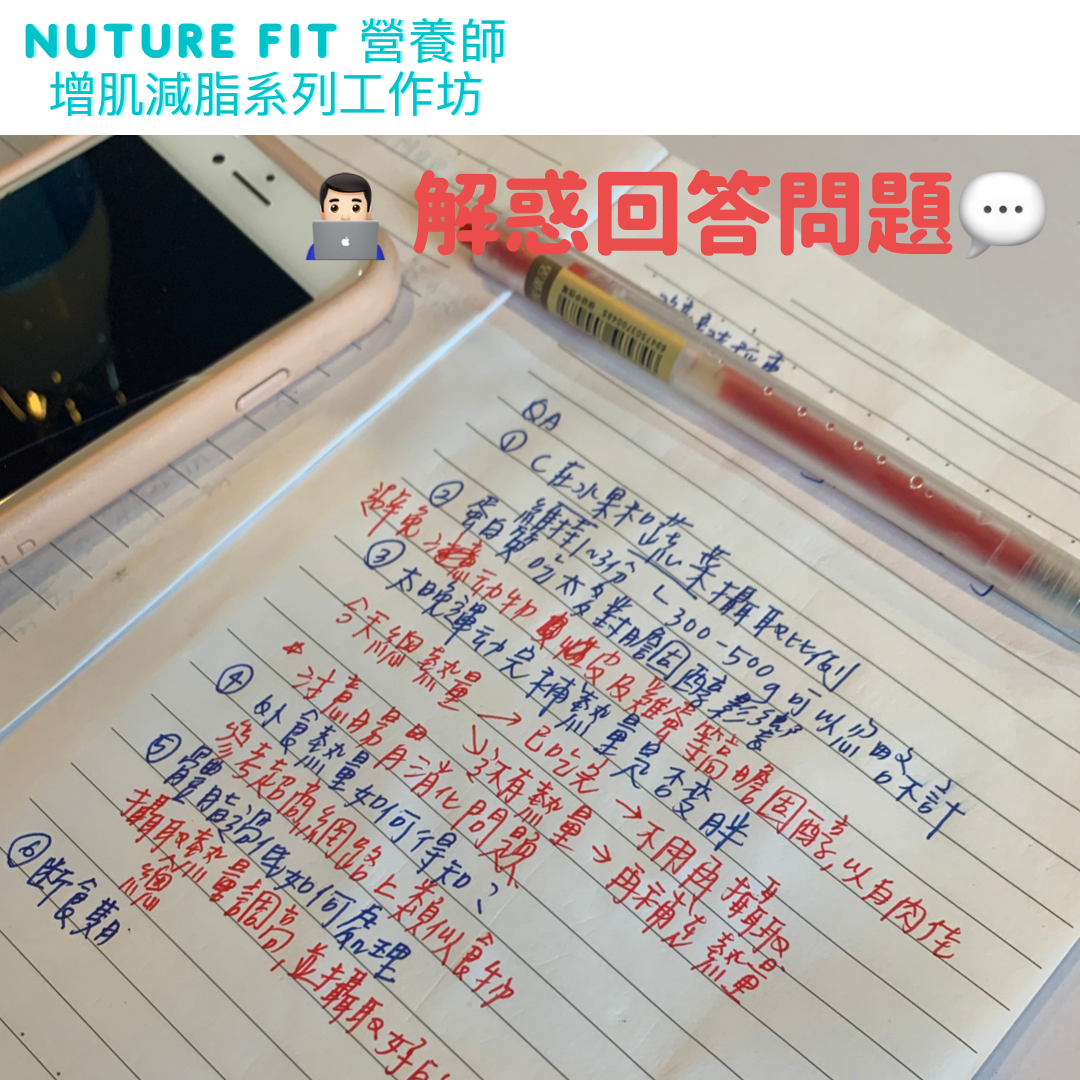 NUTURE FIT 營養師
增肌減脂系列工作坊
解惑回答問題
6947503700485
QA
① C在水果和蔬菜攝取比例
維持1~3份 300-500g可以忽略不計
② 蛋白質吃太多對膽固醇影響
避免 動物 皮及雞蛋 膽固醇,以白肉佳
③ 太晚運動完補熱量是否變胖
今天總熱量 → 已吃完 → 不用再攝取
還有熱量 → 再補充熱量
* 注意腸胃消化問題
④ 外食熱量如何得知?
參考超商網路上類似食物
⑤ 體脂過低如何處理
攝取總熱量調高,並攝取好
⑥ 斷食